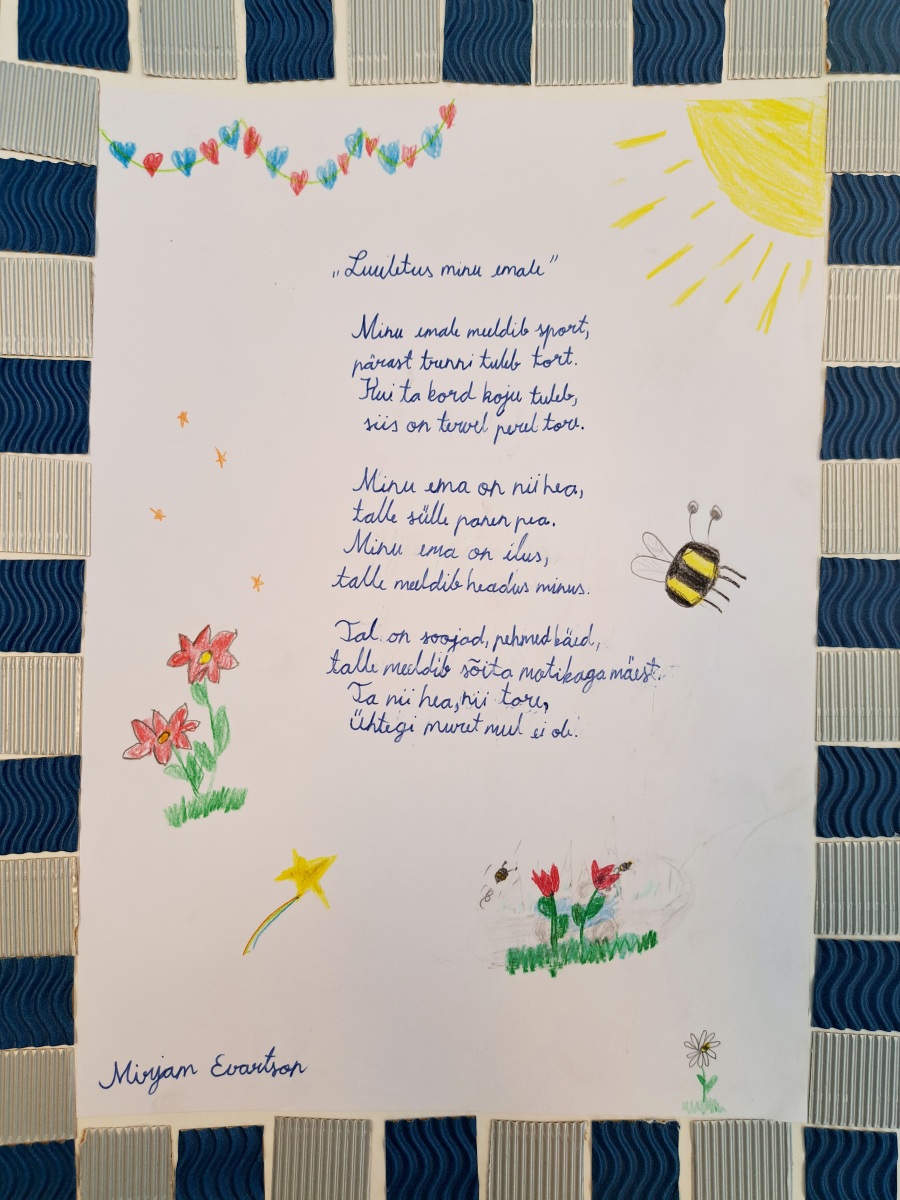 „Luuletus minu emale"
Minu emale meeldib sport,
pärast trenni tuleb tort.
Kui ta kord koju tuleb,
siis on tervel perel tore.
Minu ema on nii hea,
talle sülle panen pea.
Minu ema on ilus,
talle meeldib headus minus.
Tal on soojad, pehmed käed,
talle meeldib sõita matikaga mäest.
Ta nii hea, nii tore,
Ühtegi muret mul ei ole.
Mirjam Evartson